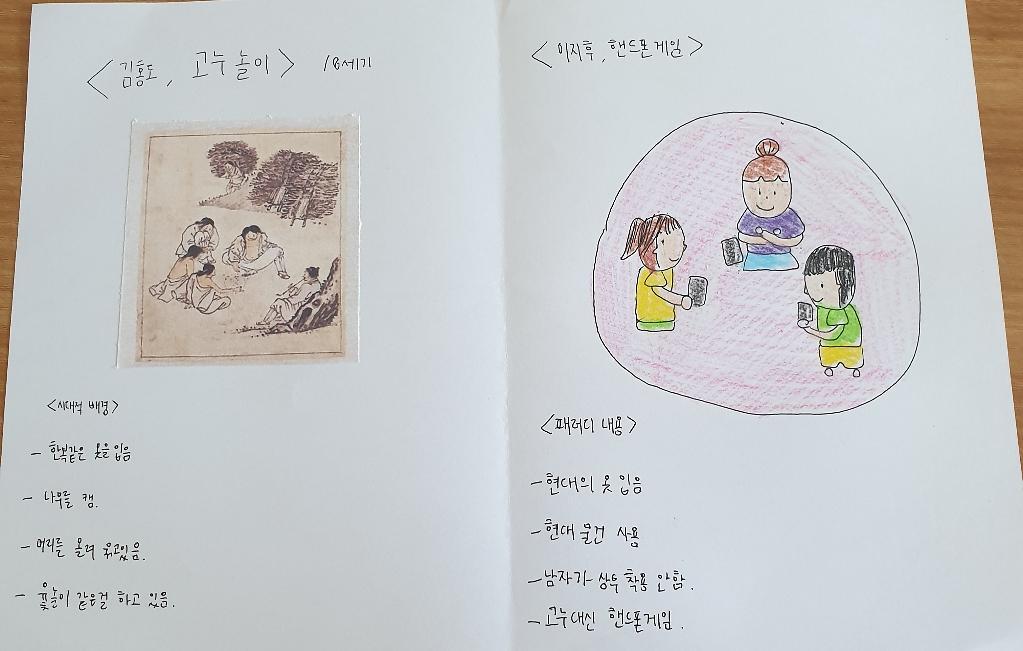 <김홍도, 고누놀이> 18세기
<시대적 배경>
- 한복같은 옷을 입음
- 나무를 캠.
- 머리를 올려 묶고있음.
- 윷놀이 같은걸 하고 있음.
<이지후, 핸드폰게임>
<패러디 내용>
- 현대의 옷 입음
- 현대 물건 사용
- 남자가 상투 착용 안함.
- 고누대신 핸드폰게임.